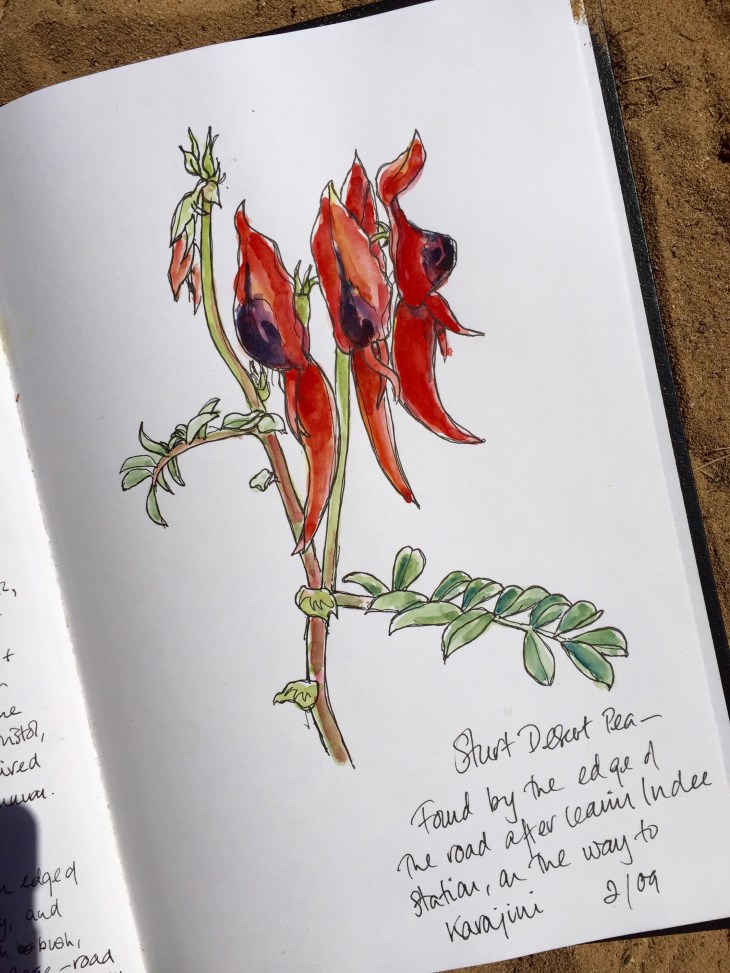 ired
edged
and
bush,
road
Sturt Desert Pea—
Found by the edge of
the road after leavin Indee
Station, on the way to
Karajini 2/09